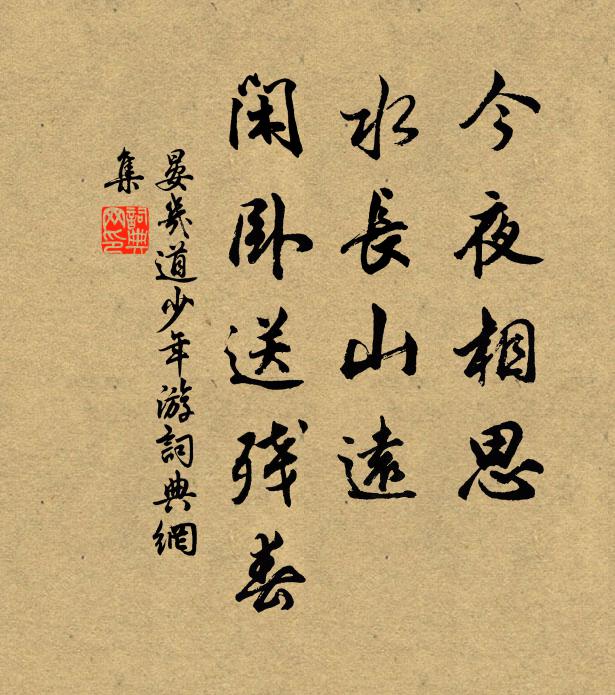 今夜相思
水長山遠
闲卧送残春
晏幾道少年游詞典網
集
詞典
网印